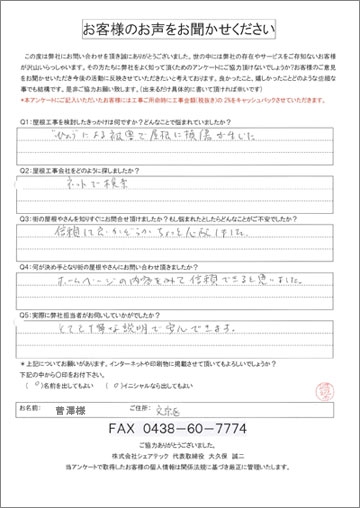 お客様のお声をお聞かせください
この度は弊社にお問い合わせを頂き誠にありがとうございました。世の中には弊社の存在やサービスをご存知ないお客様
が沢山いらっしゃいます。その方たちに弊社をよく知って頂くためのアンケートにご協力頂けないでしょうか?お客様のご意見
をお聞かせいただき今後の活動に反映させていただきたいと考えております。良かったこと、嬉しかったことどのような些細な
事でも結構です。是非ご協力お願い致します。(出来るだけ具体的に書いて頂ければ幸いです)
*本アンケートにご記入いただいたお客様には工事ご所命時に工事金額(税抜き)の2%をキャッシュバックさせていただきます。
Q1:屋根工事を検討したきっかけは何ですか?どんなことで悩まれていましたか?
による被害で屋根に損傷が生じた
Q2:屋根工事会社をどのように探しましたか?
ネットで検索
Q3:街の屋根やさんを知りすぐにお問合せ頂けましたか?もし悩まれたとしたらどんなことがご不安でしたか?
信頼に足るかどうかちょっと心配しました。
Q4:何が決め手となり街の屋根やさんにお問い合わせ頂きましたか?
ホームページの内容をみて信頼できると思いました。
Q5:実際に弊社担当者がお伺いしていかがでしたか?
とても丁寧な説明で安心できます。
*上記についてお願いがあります。インターネットや印刷物に掲載させて頂いてもよろしいでしょうか?
下記の中から〇印をお付下さい。
(〇)名前を出してもよい (〇)イニシャルなら出してもよい
お名前: 曽澤様 ご住所: 文京区
FAX 0438-60-7774
ご協力ありがとうございました。
株式会社シェアテック 代表取締役 大久保 誠二
当アンケートで取得したお客様の個人情報は関係法規に基づき厳正に管理いたします。